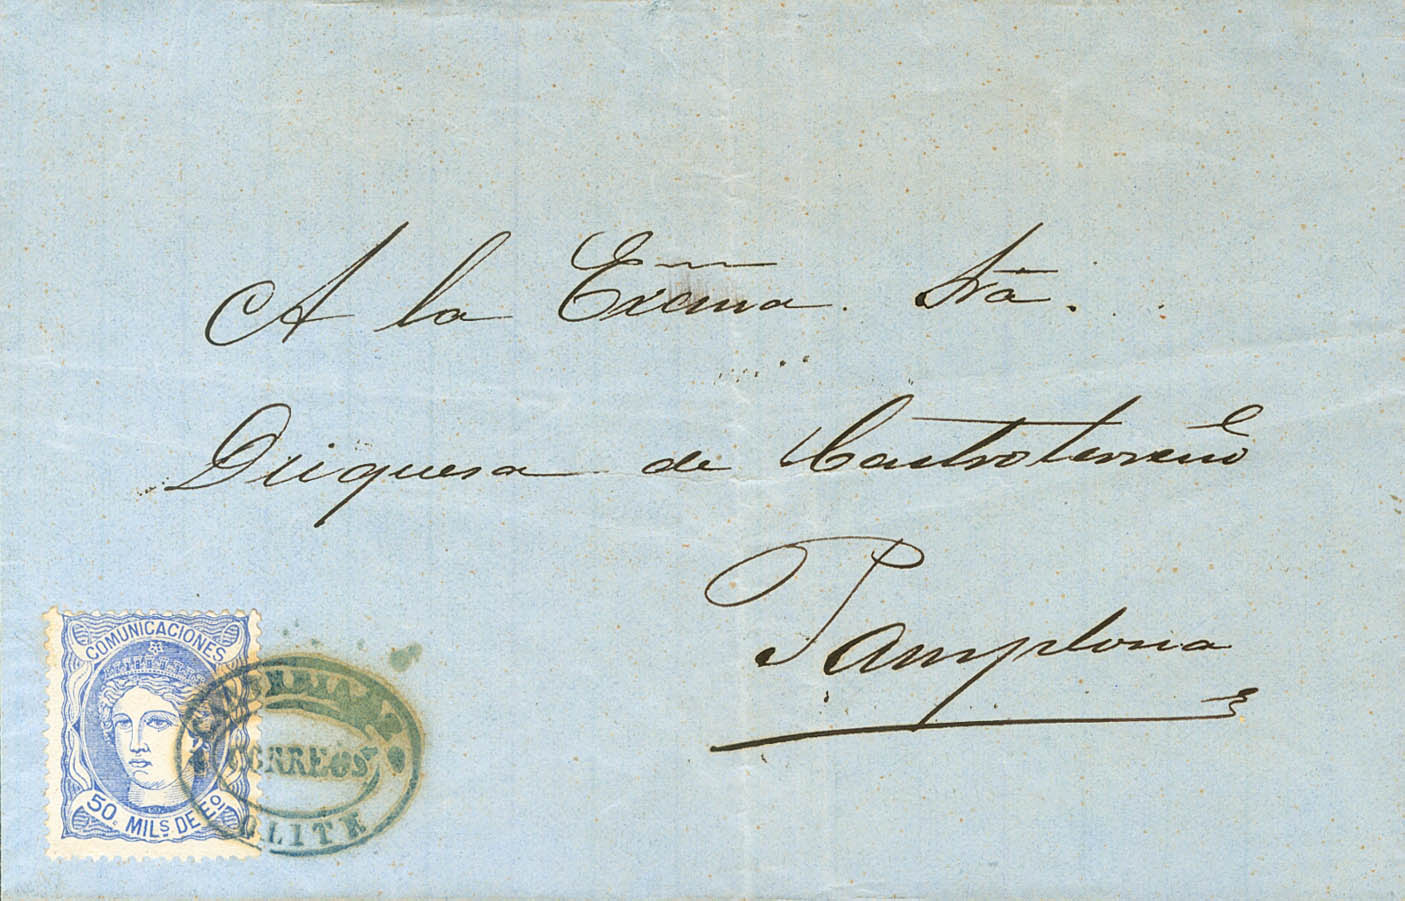 A la Excma. Sra.
Duquesa de Castroterreño
Pamplona
COMUNICACIONES
50 MILS DE Eo
CORREOS
OLITE